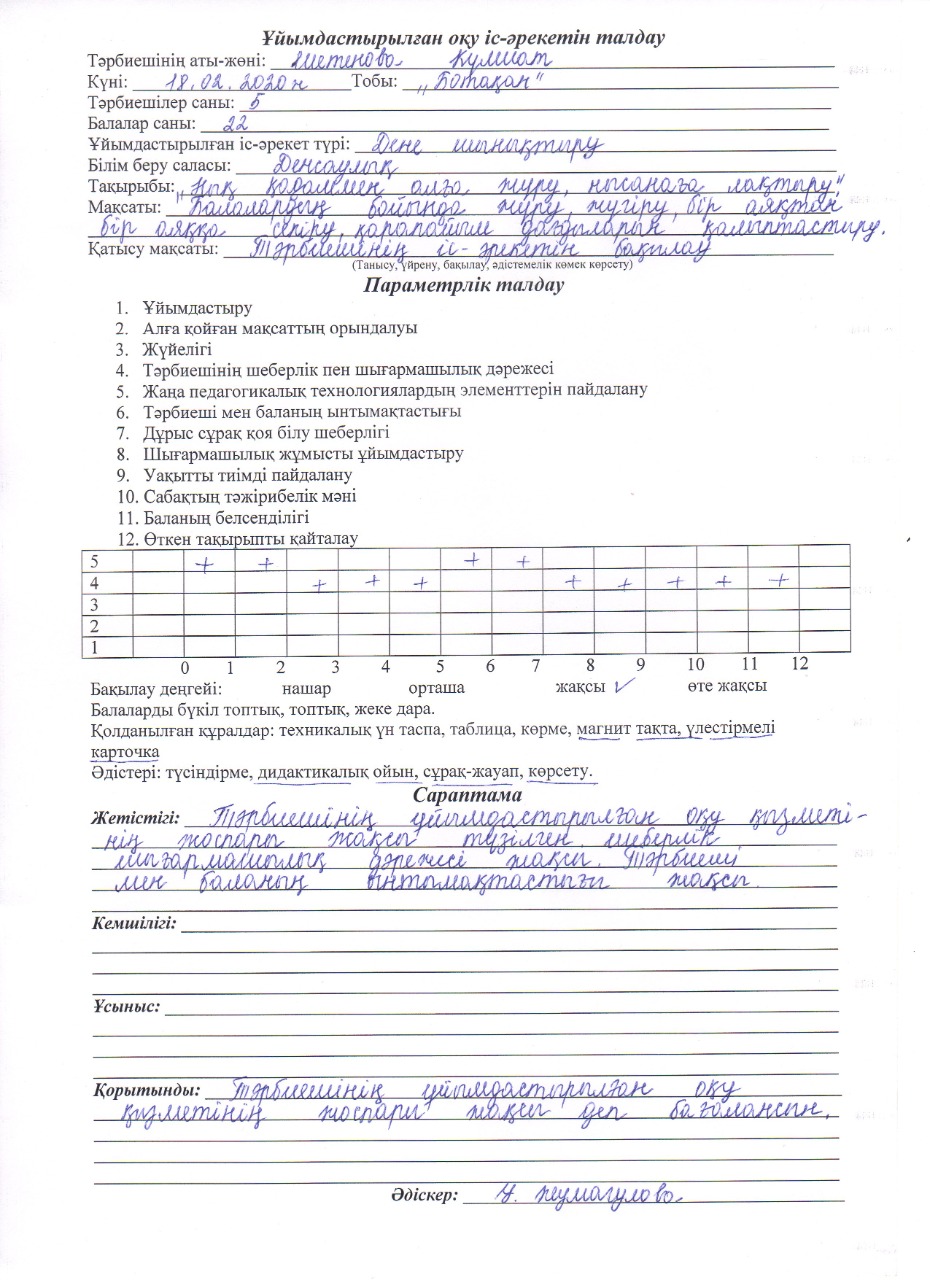 Ұйымдастырылған оқу іс-әрекетін талдау
Тәрбиешінің аты-жөні: Шетенова Кулшат
Күні: 18.02.2020ж Тобы: „Ботақан“
Тәрбиешілер саны: 5
Балалар саны: 22
Ұйымдастырылған іс-әрекет түрі: Дене шынықтыру
Білім беру саласы: Денсаулық
Тақырыбы: „Нық қадаммен алға жүру, нысанаға лақтыру“
Мақсаты: Балалардың бойында жүру, жүгіру, бір аяқтан
бір аяққа секіру, қарапайым дағдыларын қалыптастыру.
Қатысу мақсаты: Тәрбиешінің іс-әрекетін бақылау
(Танысу, үйрену, бақылау, әдістемелік көмек көрсету)
Параметрлік талдау
1. Ұйымдастыру
2. Алға қойған мақсаттың орындалуы
3. Жүйелігі
4. Тәрбиешінің шеберлік пен шығармашылық дәрежесі
5. Жаңа педагогикалық технологиялардың элементтерін пайдалану
6. Тәрбиеші мен баланың ынтымақтастығы
7. Дұрыс сұрақ қоя білу шеберлігі
8. Шығармашылық жұмысты ұйымдастыру
9. Уақытты тиімді пайдалану
10. Сабақтың тәжірибелік мәні
11. Баланың белсенділігі
12. Өткен тақырыпты қайталау
5 + + + +
4 + + + + + + + +
3
2
1
0 1 2 3 4 5 6 7 8 9 10 11 12
Бақылау деңгейі: нашар орташа жақсы ✓ өте жақсы
Балаларды бүкіл топтық, топтық, жеке дара.
Қолданылған құралдар: техникалық үн таспа, таблица, көрме, магнит тақта, үлестірмелі
карточка
Әдістері: түсіндірме, дидактикалық ойын, сұрақ-жауап, көрсету.
Сараптама
Жетістігі: Тәрбиешінің ұйымдастырылған оқу қызметі-
нің жоспары жақсы түзілген. шеберлік
шығармашылық дәрежесі жақсы. Тәрбиеші
мен баланың ынтымақтастығы жақсы.
Кемшілігі:
Ұсыныс:
Қорытынды: Тәрбиешінің ұйымдастырылған оқу
қызметінің жоспары жақсы деп бағалансын.
Әдіскер: Жумагулова